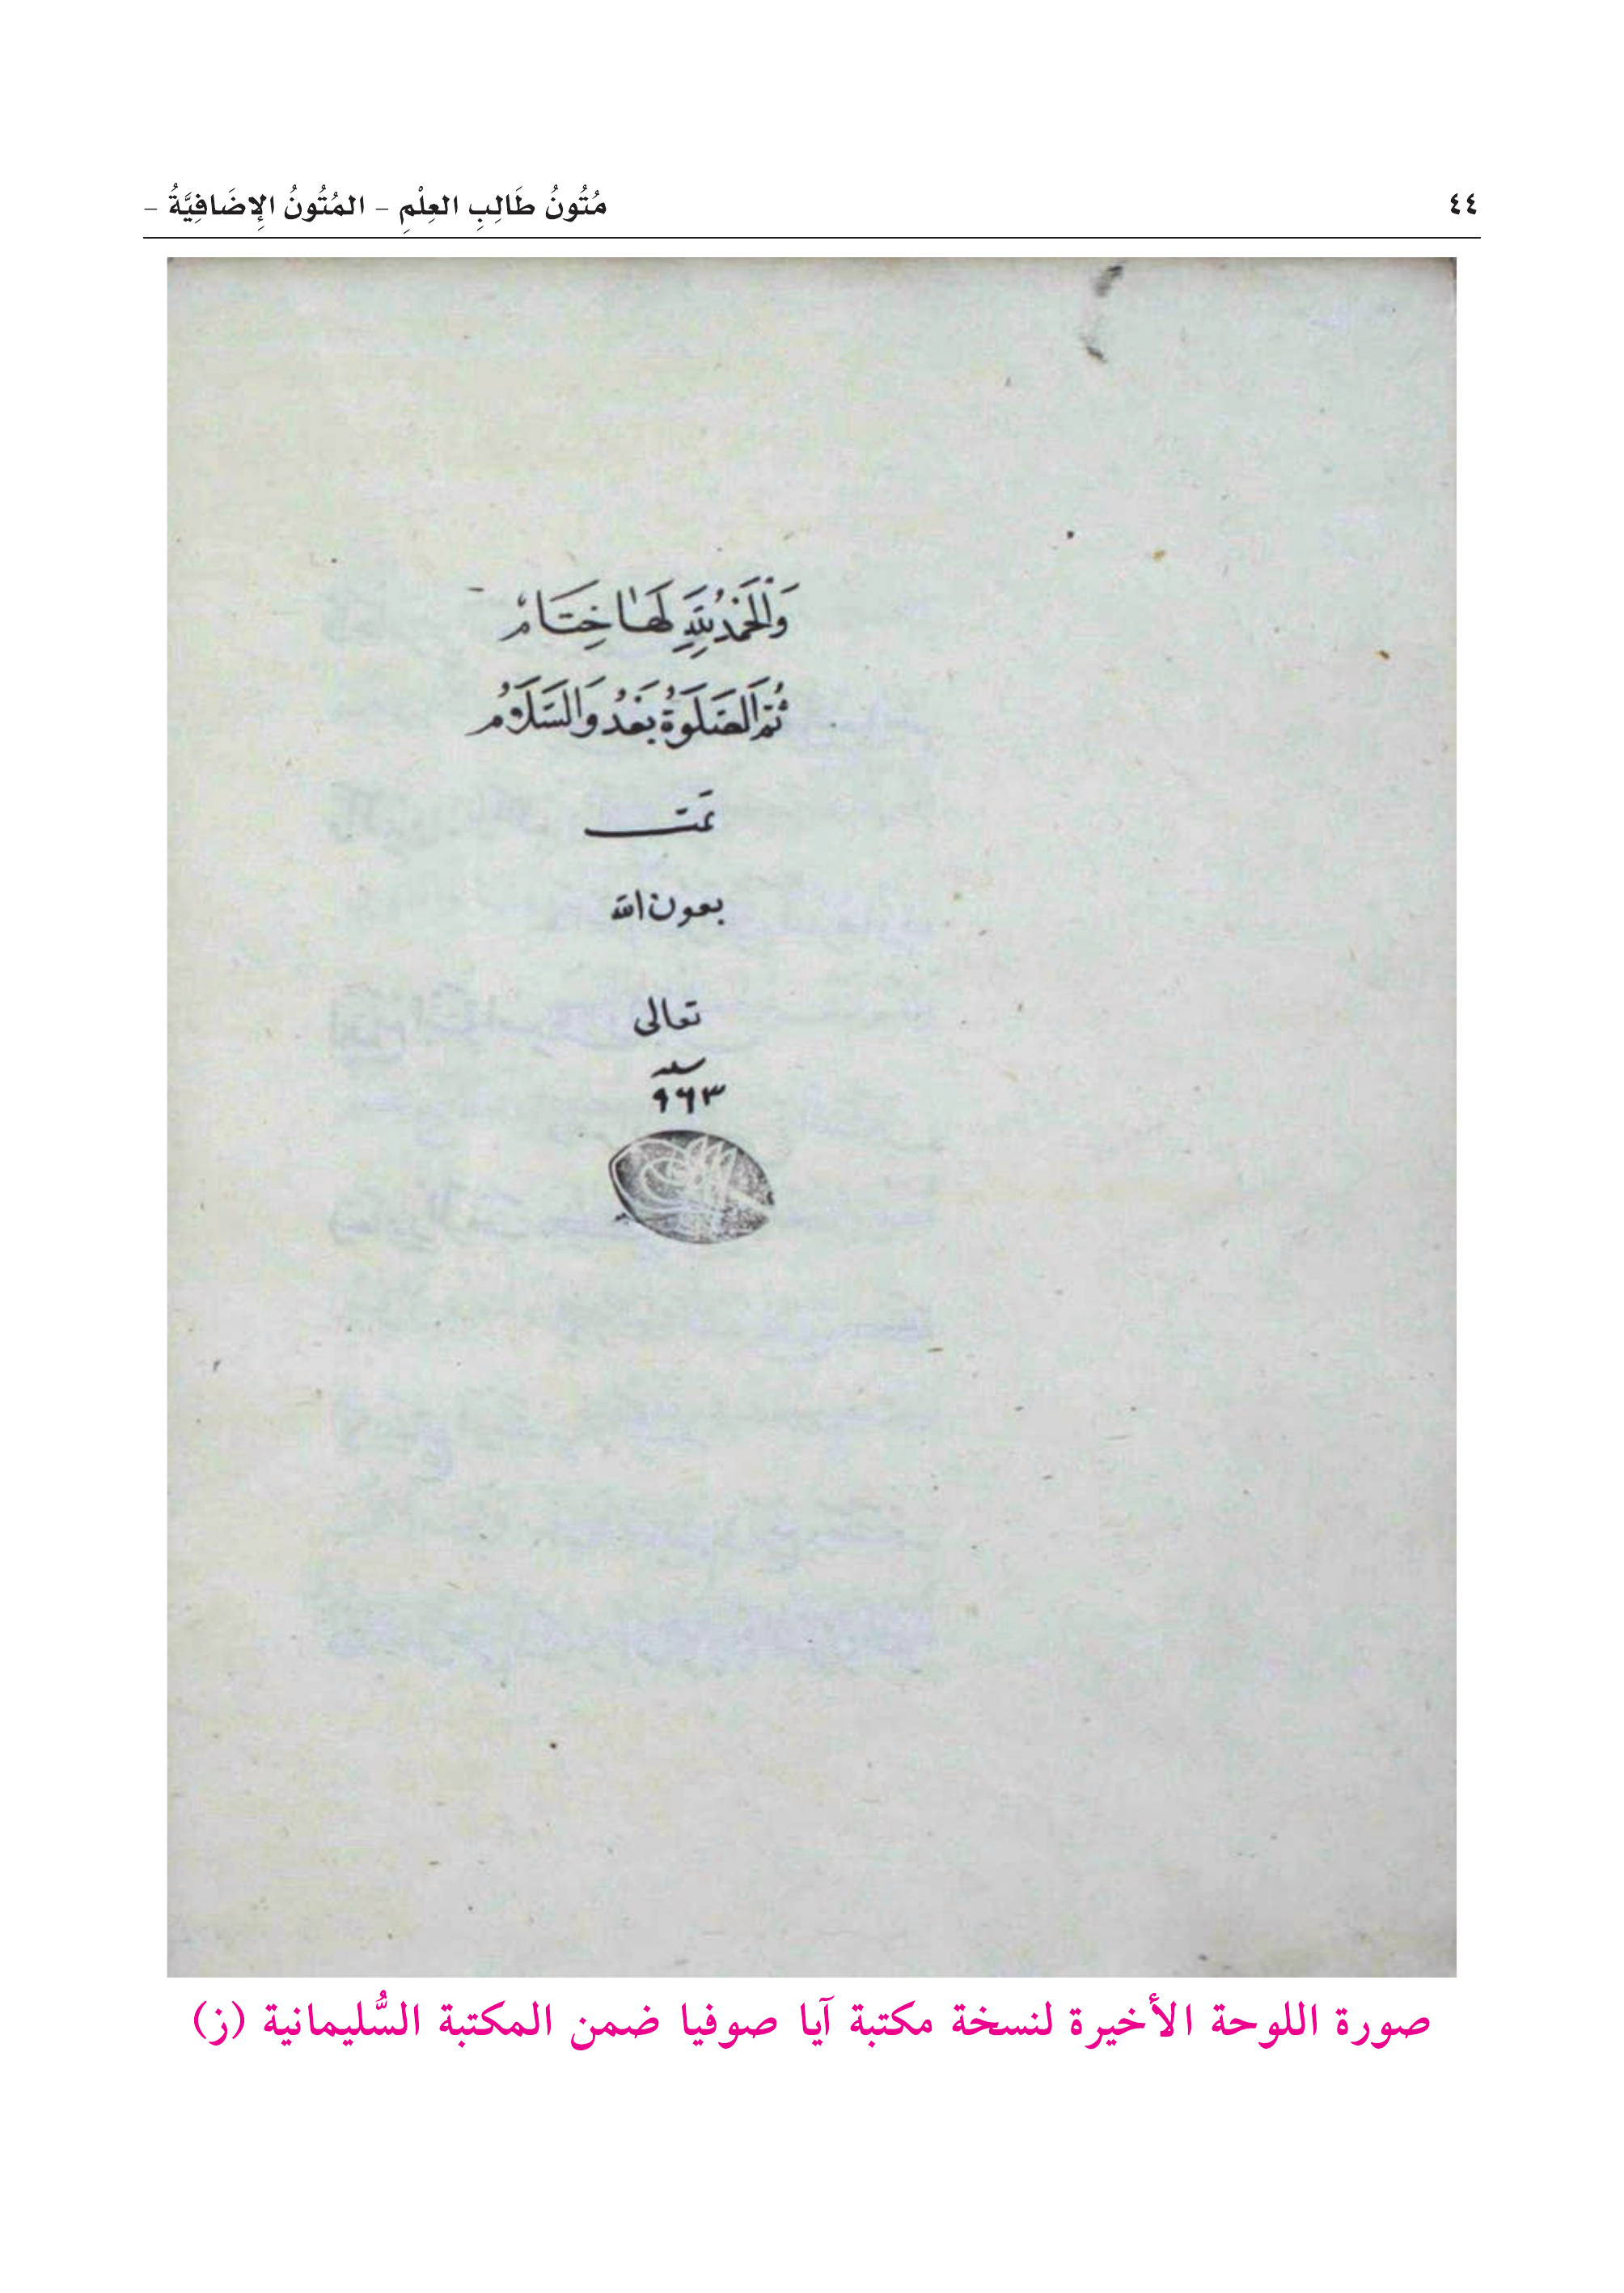 ٤٤ مُتُونُ طَالِبِ العِلْمِ – المُتُونُ الإِضَافِيَّةُ –
وَالْحَمْدُ لِلّٰهِ لَهَا خِتَامُ
ثُمَّ الصَّلَوةُ بَعْدُ وَالسَّلَامُ
تمت
بعون الله
تعالى
سنه
٩٦٣
صورة اللوحة الأخيرة لنسخة مكتبة آيا صوفيا ضمن المكتبة السُّليمانية (ز)